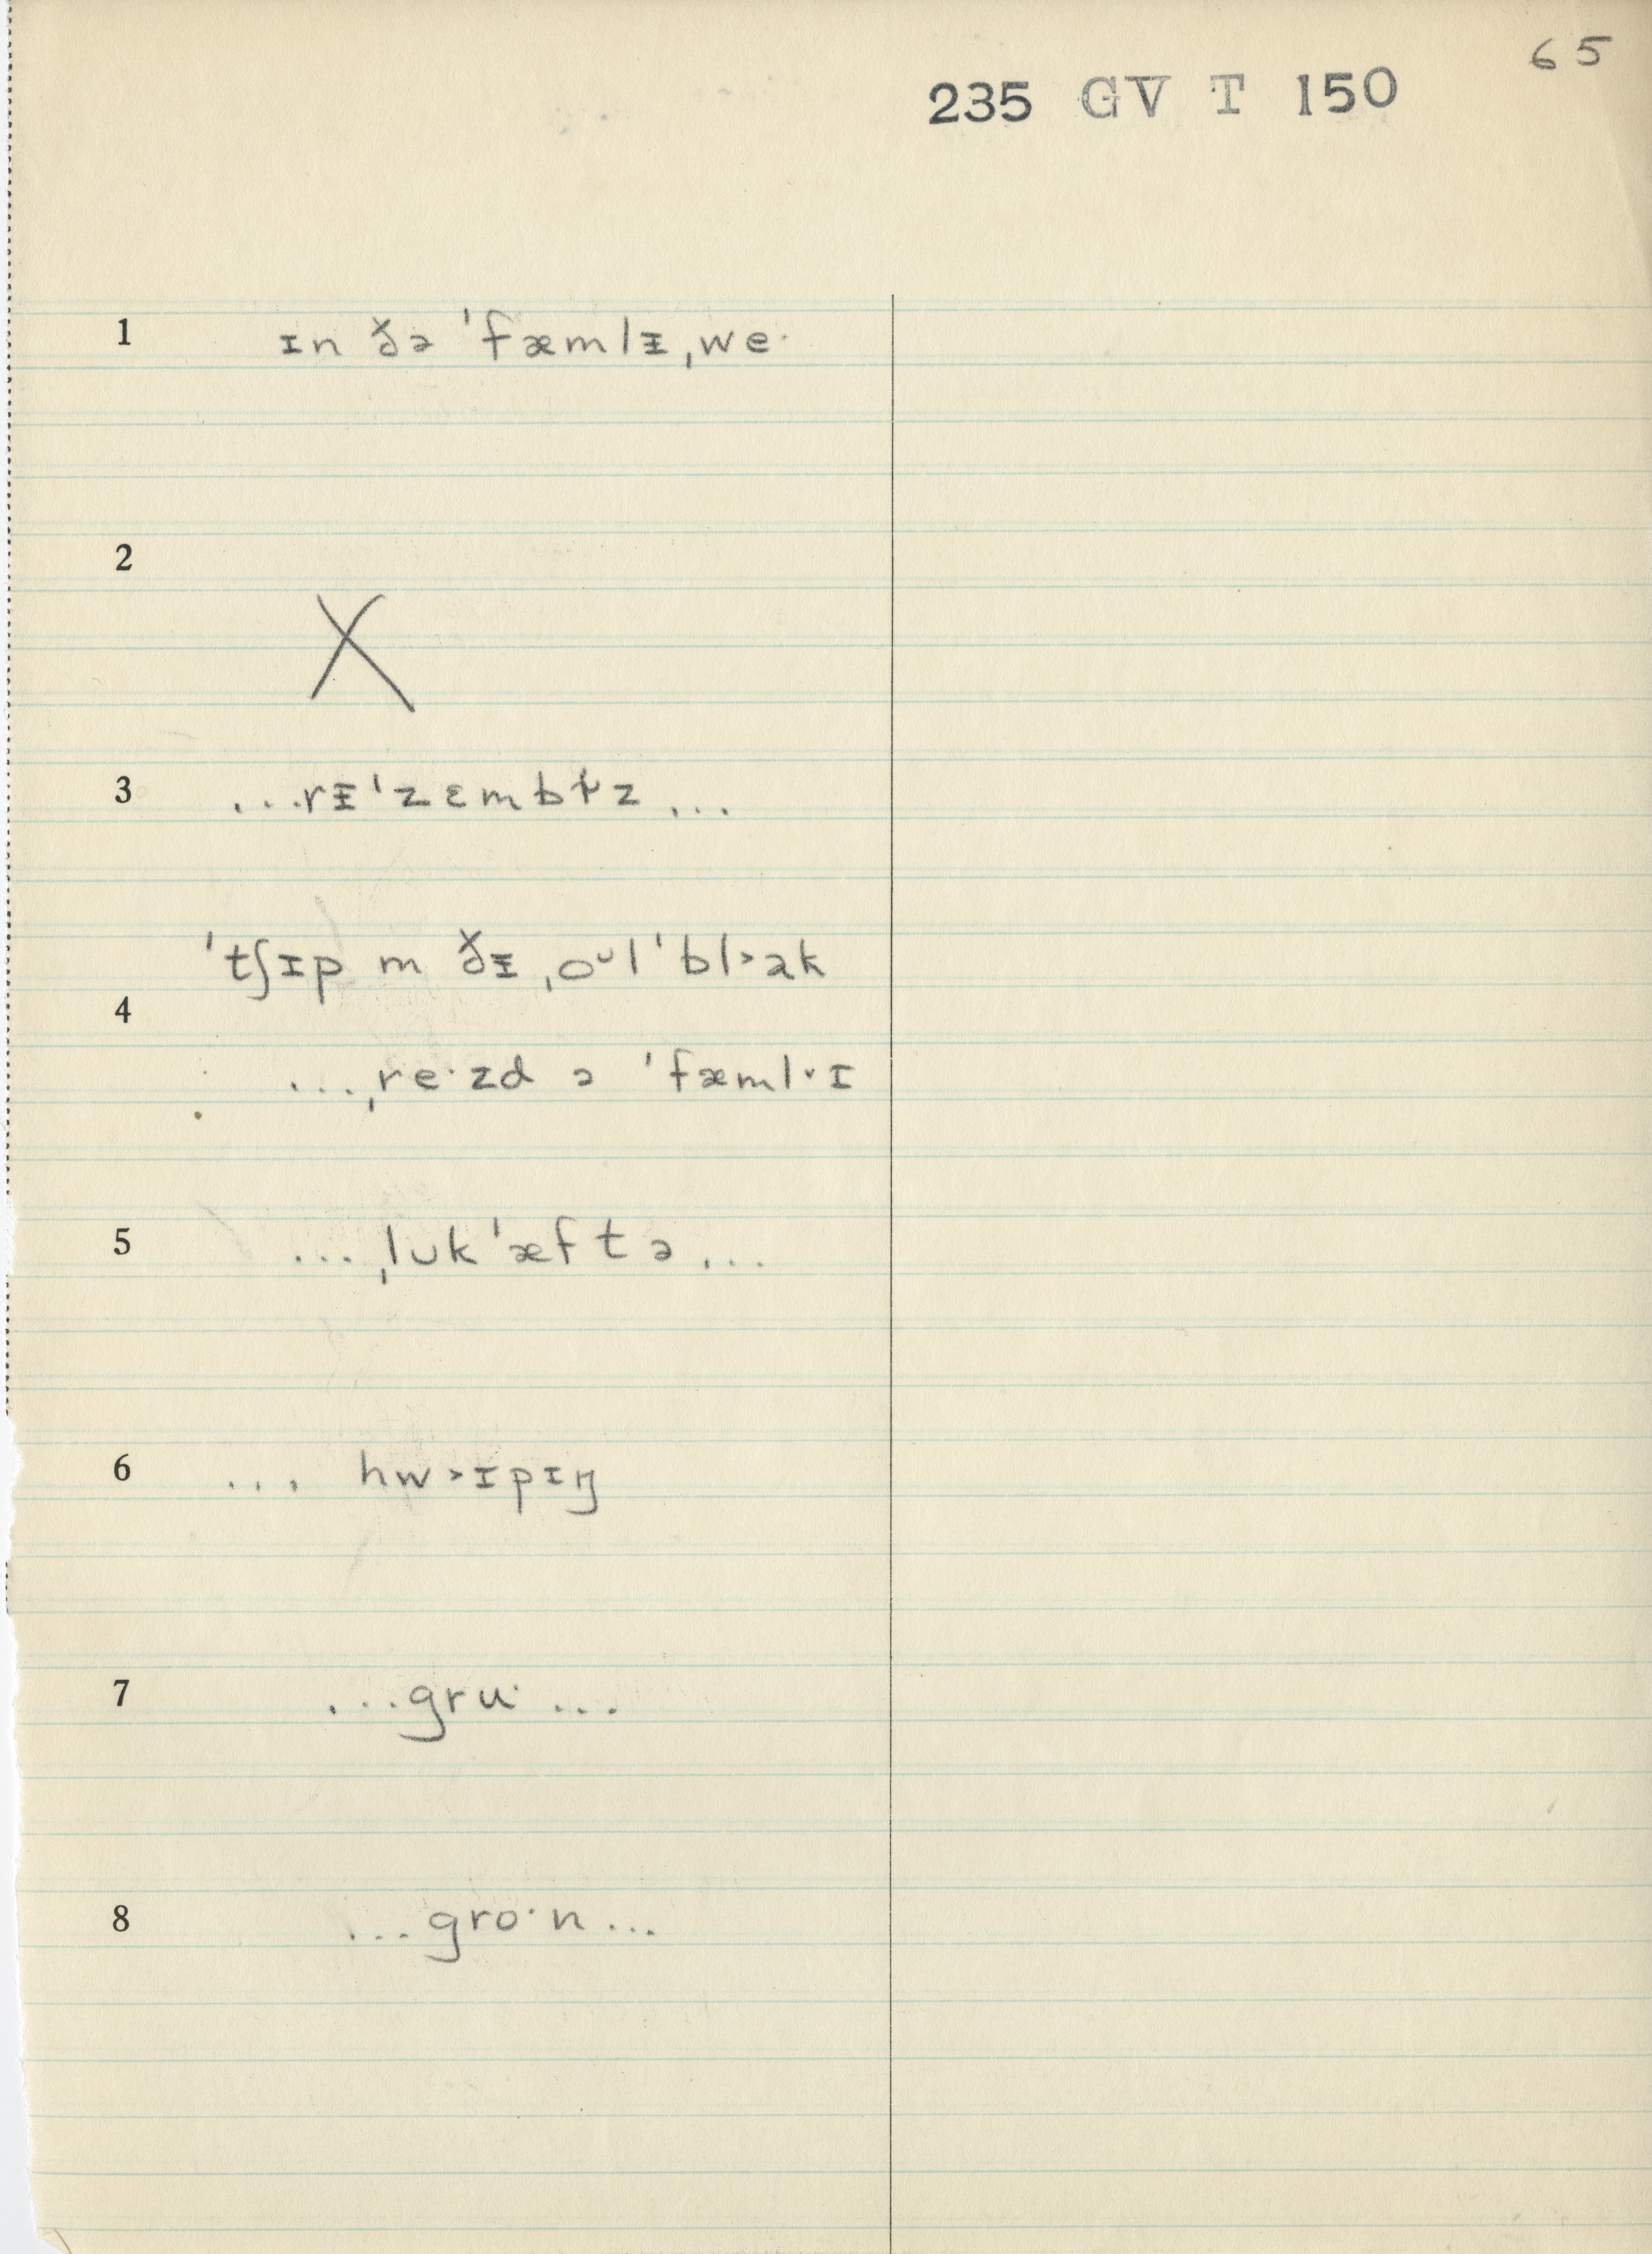 65
235 GV T 150
1 ɪn ðə ˈfæmlᵻˌwe·
2 X
3 ...rᵻˈzɛmbɫz...
ˈtʃɪp m ðᵻ ˌoᴗlˈbl˃ək
4
...ˌre·zd ə ˈfæml˅ɪ
5 ...ˌlᴜkˈæftə...
6 ... hw˃ɪpɪŋ
7 ...gru·...
8 ...gro·n...